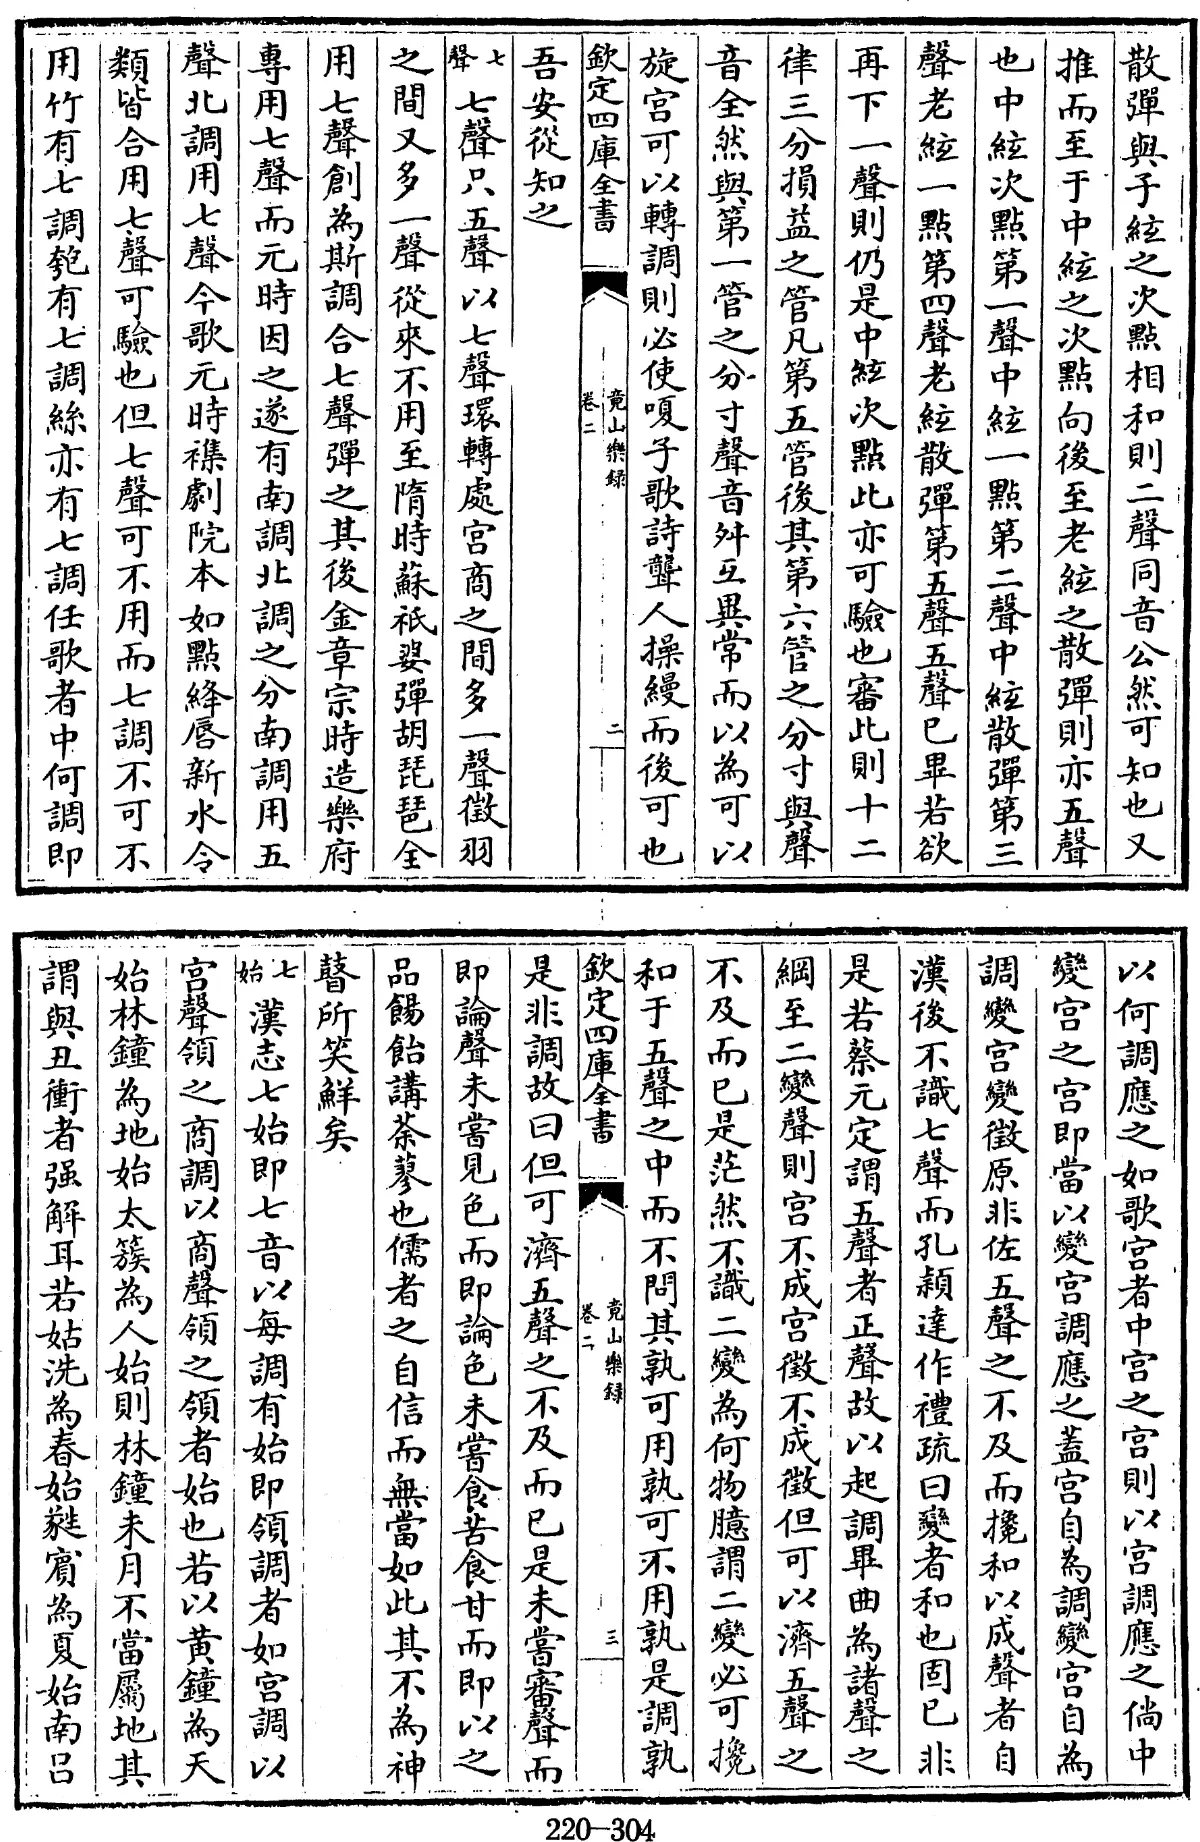 散彈與子絃之次點相和則二聲同音公然可知也又
推而至于中絃之次點向後至老絃之散彈則亦五聲
也中絃次點第一聲中絃一點第二聲中絃散彈第三
聲老絃一點第四聲老絃散彈第五聲五聲已畢若欲
再下一聲則仍是中絃次點此亦可驗也審此則十二
律三分損益之管凡第五管後其第六管之分寸與聲
音全然與第一管之分寸聲音舛互異常而以為可以
旋宫可以轉調則必使嗄子歌詩聾人操縵而後可也
欽定四庫全書
竟山樂録
卷二
二
吾安從知之
七聲
七聲只五聲以七聲環轉處宫商之間多一聲徵羽
之間又多一聲從來不用至隋時蘇祇婆彈胡琵琶全
用七聲創為斯調合七聲彈之其後金章宗時造樂府
專用七聲而元時因之遂有南調北調之分南調用五
聲北調用七聲今歌元時襍劇院本如點絳唇新水令
類皆合用七聲可驗也但七聲可不用而七調不可不
用竹有七調匏有七調絲亦有七調任歌者中何調即
以何調應之如歌宫者中宫之宫則以宫調應之倘中
變宫之宫即當以變宫調應之蓋宫自為調變宫自為
調變宫變徵原非佐五聲之不及而攙和以成聲者自
漢後不識七聲而孔穎達作禮疏曰變者和也固已非
是若蔡元定謂五聲者正聲故以起調畢曲為諸聲之
綱至二變聲則宫不成宫徵不成徵但可以濟五聲之
不及而已是茫然不識二變為何物臆謂二變必可攙
和于五聲之中而不問其孰可用孰可不用孰是調孰
欽定四庫全書
竟山樂録
卷二
三
是非調故曰但可濟五聲之不及而已是未嘗審聲而
即論聲未嘗見色而即論色未嘗食苦食甘而即以之
品餳飴講荼蓼也儒者之自信而無當如此其不為神
瞽所笑鮮矣
七始
漢志七始即七音以每調有始即領調者如宫調以
宫聲領之商調以商聲領之領者始也若以黄鐘為天
始林鐘為地始太簇為人始則林鐘未月不當屬地其
謂與丑衝者强解耳若姑洗為春始蕤賓為夏始南吕
220—304